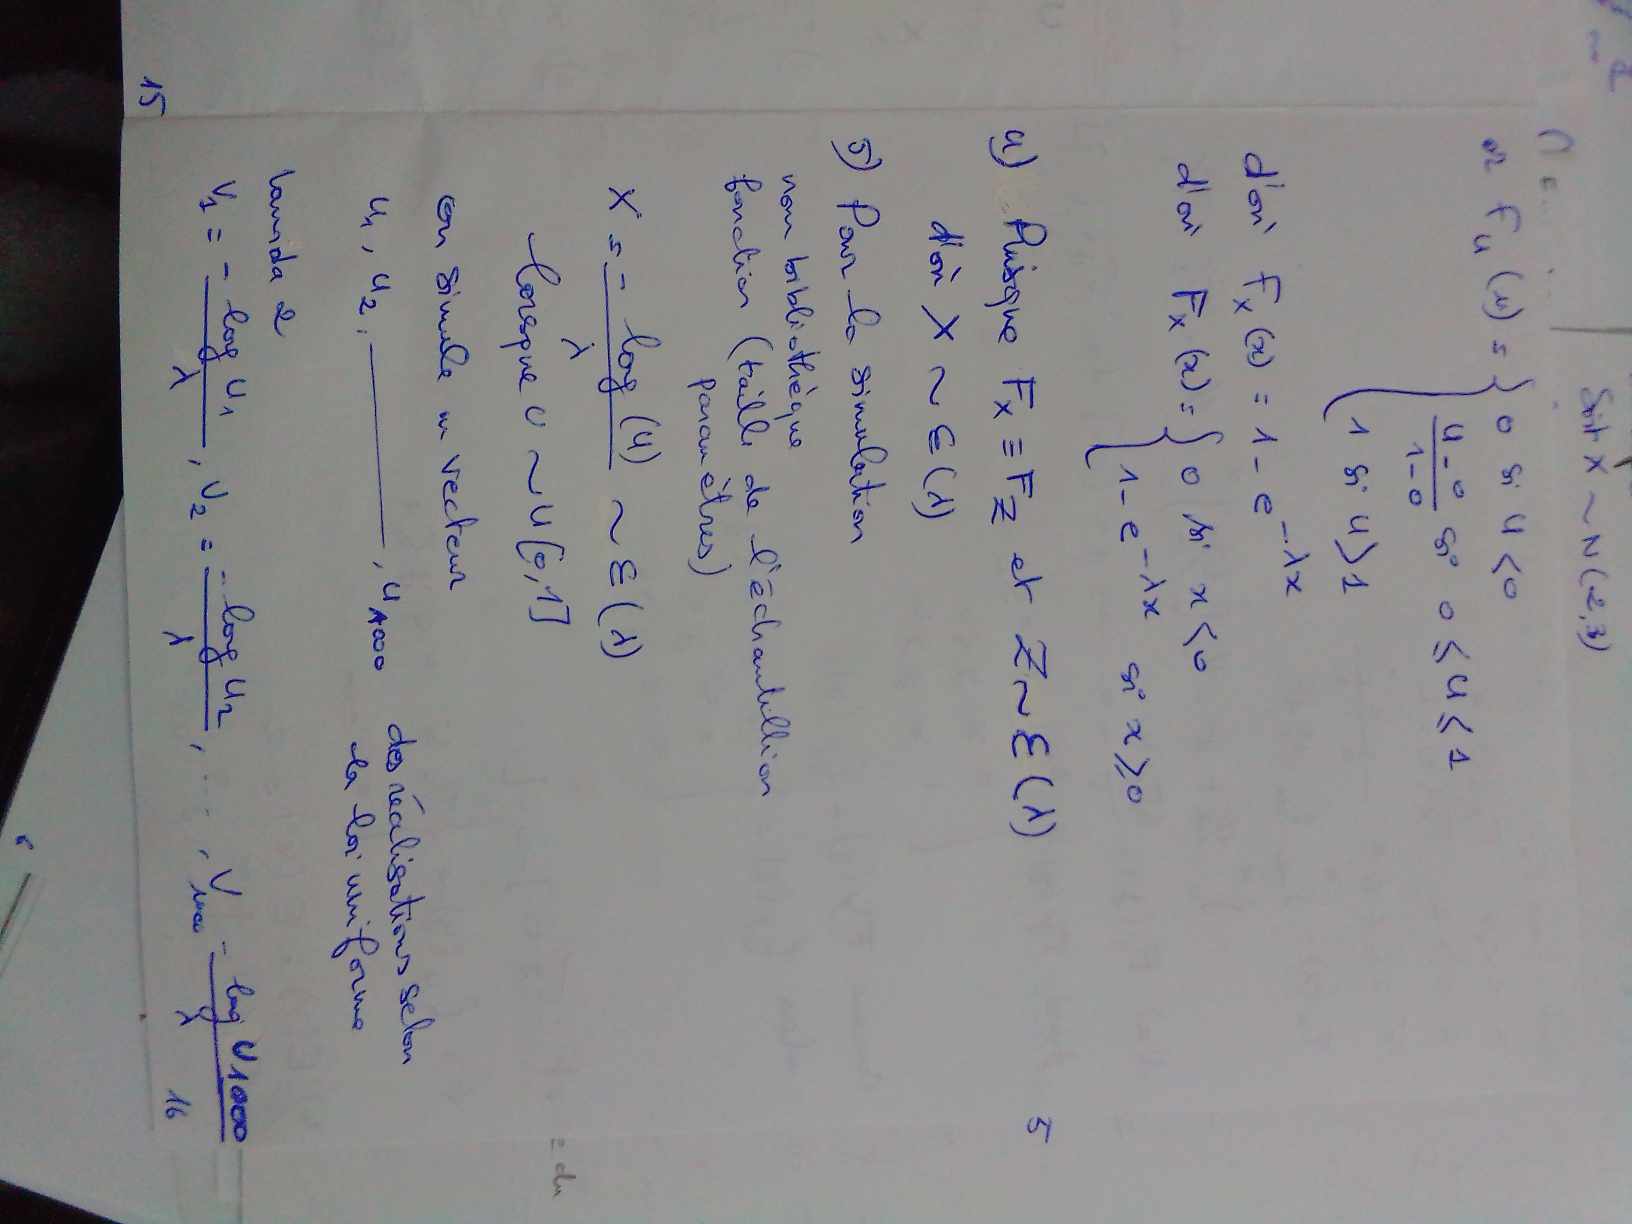 Soit X ~ N(2,3)
or F_u(u) = { 0 si u < 0
u-0/1-0 si 0 ≤ u ≤ 1
1 si u > 1
d'où F_X(x) = 1 - e^{-λx}
d'où F_X(x) = { 0 si x < 0
1 - e^{-λx} si x ≥ 0
4) Puisque F_X ≡ F_Z et Z ~ ε(λ)
d'où X ~ ε(λ)
5
5) Pour la simulation
nom bibliothèque
fonction (taille de l'échantillion
paramètres)
X = - log(u)/λ ~ ε(λ)
lorsque U ~ U[0,1]
= du
on simule un vecteur
u_1, u_2, ———, u_1000 des réalisations selon
la loi uniforme
lamda 2
V_1 = - log u_1/λ, V_2 = - log u_2/λ, ...., V_1000 - log u_1000/λ
15
16